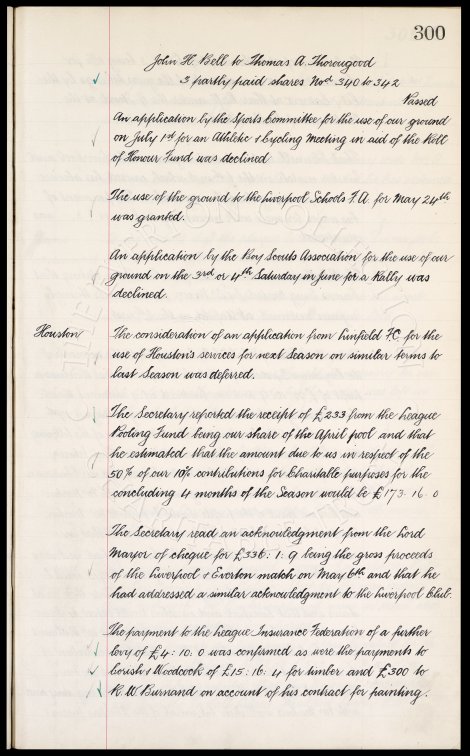 300
John H. Bell to Thomas A. Thorougood
3 partly paid shares Nos. 340 to 342
Passed
An application by the Sports Committee for the use of our ground
on July 1st for an Athletic & Cycling Meeting in aid of the Roll
of Honour Fund was declined
The use of the ground to the Liverpool Schools F.A. for May 24th
was granted.
An application by the Boy Scouts Association for the use of our
ground on the 3rd or 4th Saturday in June for a Rally was
declined.
Houston
The consideration of an application from Linfield F.C. for the
use of Houston's services for next Season on similar terms to
last Season was deferred.
The Secretary reported the receipt of £233 from the League
Pooling Fund being our share of the April pool and that
he estimated that the amount due to us in respect of the
50% of our 10% contributions for Charitable purposes for the
concluding 4 months of the Season would be £173. 16. 0
The Secretary read an acknowledgment from the Lord
Mayor of cheque for £336: 1: 9 being the gross proceeds
of the Liverpool & Everton match on May 6th and that he
had addressed a similar acknowledgment to the Liverpool Club.
The payment to the League Insurance Federation of a further
levy of £4: 10: 0 was confirmed as were the payments to
Corish & Woodcock of £15: 16: 4 for timber and £300 to
R. W. Burnand on account of his contract for painting.